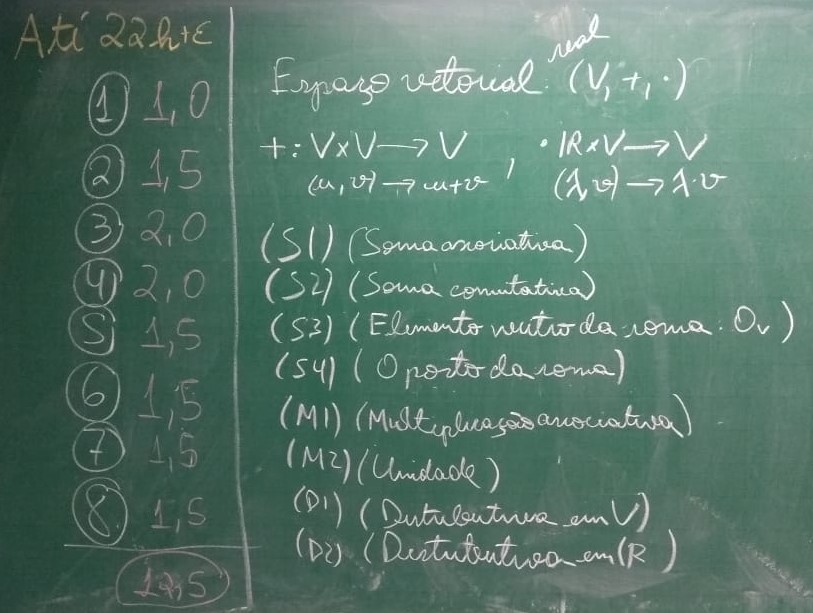 Até 22h+ε
① 1,0
② 1,5
③ 2,0
④ 2,0
⑤ 1,5
⑥ 1,5
⑦ 1,5
⑧ 1,5
12,5
Espaço vetorial real: (V, +, ·)
+: V×V → V , · ℝ×V → V
(u,v) → u+v (λ,v) → λ·v
(S1) (Soma associativa)
(S2) (Soma comutativa)
(S3) (Elemento neutro da soma: 0ᵥ)
(S4) (Oposto da soma)
(M1) (Multiplicação associativa)
(M2) (Unidade)
(D1) (Distributiva em V)
(D2) (Distributiva em ℝ)